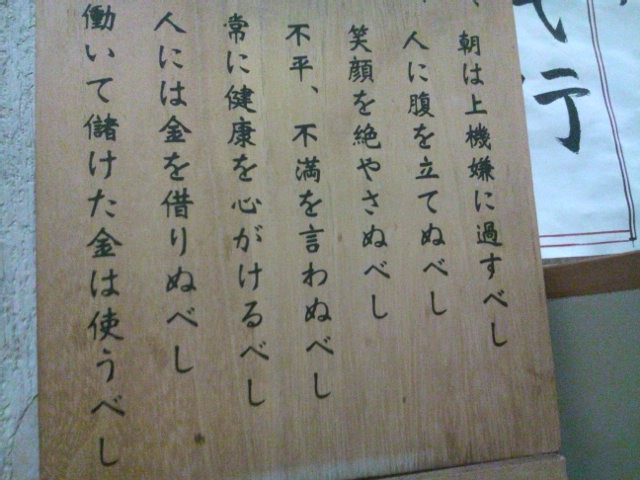 朝は上機嫌に過すべし
人に腹を立てぬべし
笑顔を絶やさぬべし
不平、不満を言わぬべし
常に健康を心がけるべし
人には金を借りぬべし
働いて儲けた金は使うべし